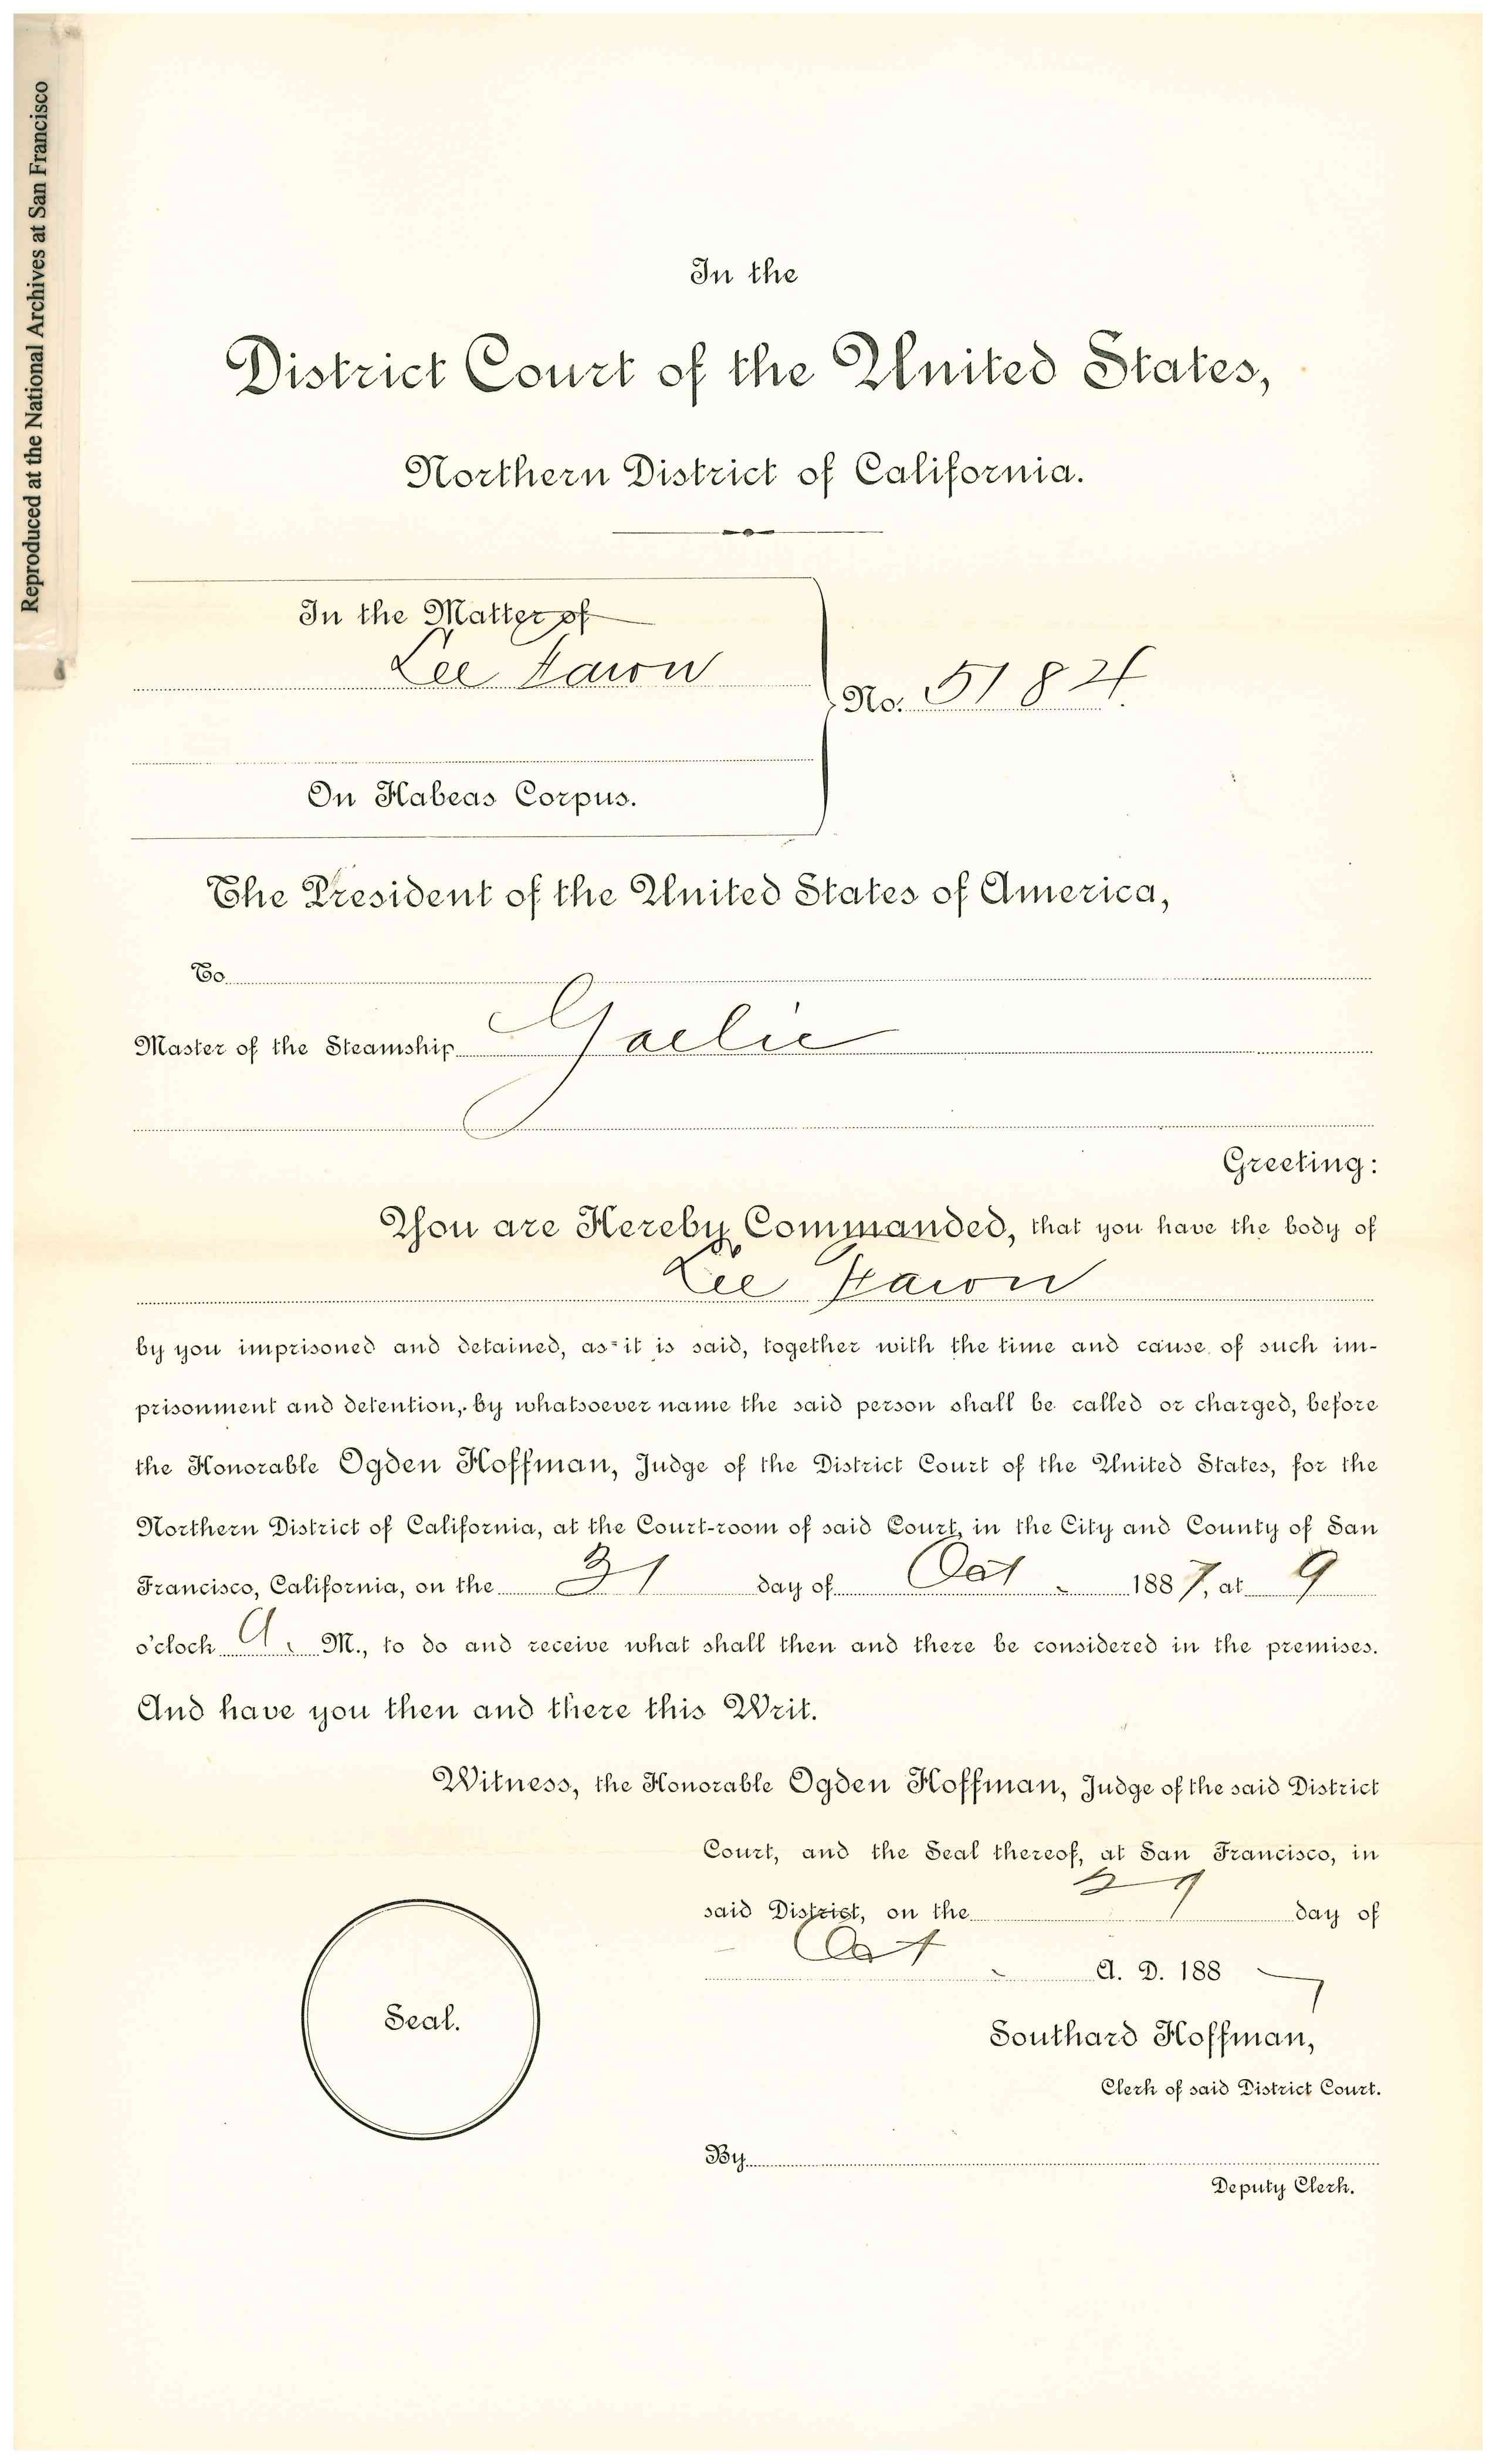 Reproduced at the National Archives at San Francisco
In the
District Court of the United States,
Northern District of California.
In the Matter of
Lee
No. 5184.
On Habeas Corpus.
The President of the United States of America,
To
Master of the Steamship Gaelic
Greeting:
You are Hereby Commanded, that you have the body of
Lee
by you imprisoned and detained, as it is said, together with the time and cause of such im-
prisonment and detention, by whatsoever name the said person shall be called or charged, before
the Honorable Ogden Hoffman, Judge of the District Court of the United States, for the
Northern District of California, at the Court-room of said Court, in the City and County of San
Francisco, California, on the 31 day of Oct 1887, at 9
o'clock A. M., to do and receive what shall then and there be considered in the premises.
And have you then and there this Writ.
Witness, the Honorable Ogden Hoffman, Judge of the said District
Court, and the Seal thereof, at San Francisco, in
said District, on the 29 day of
Oct A. D. 188 7
Seal.
Southard Hoffman,
Clerk of said District Court.
By
Deputy Clerk.